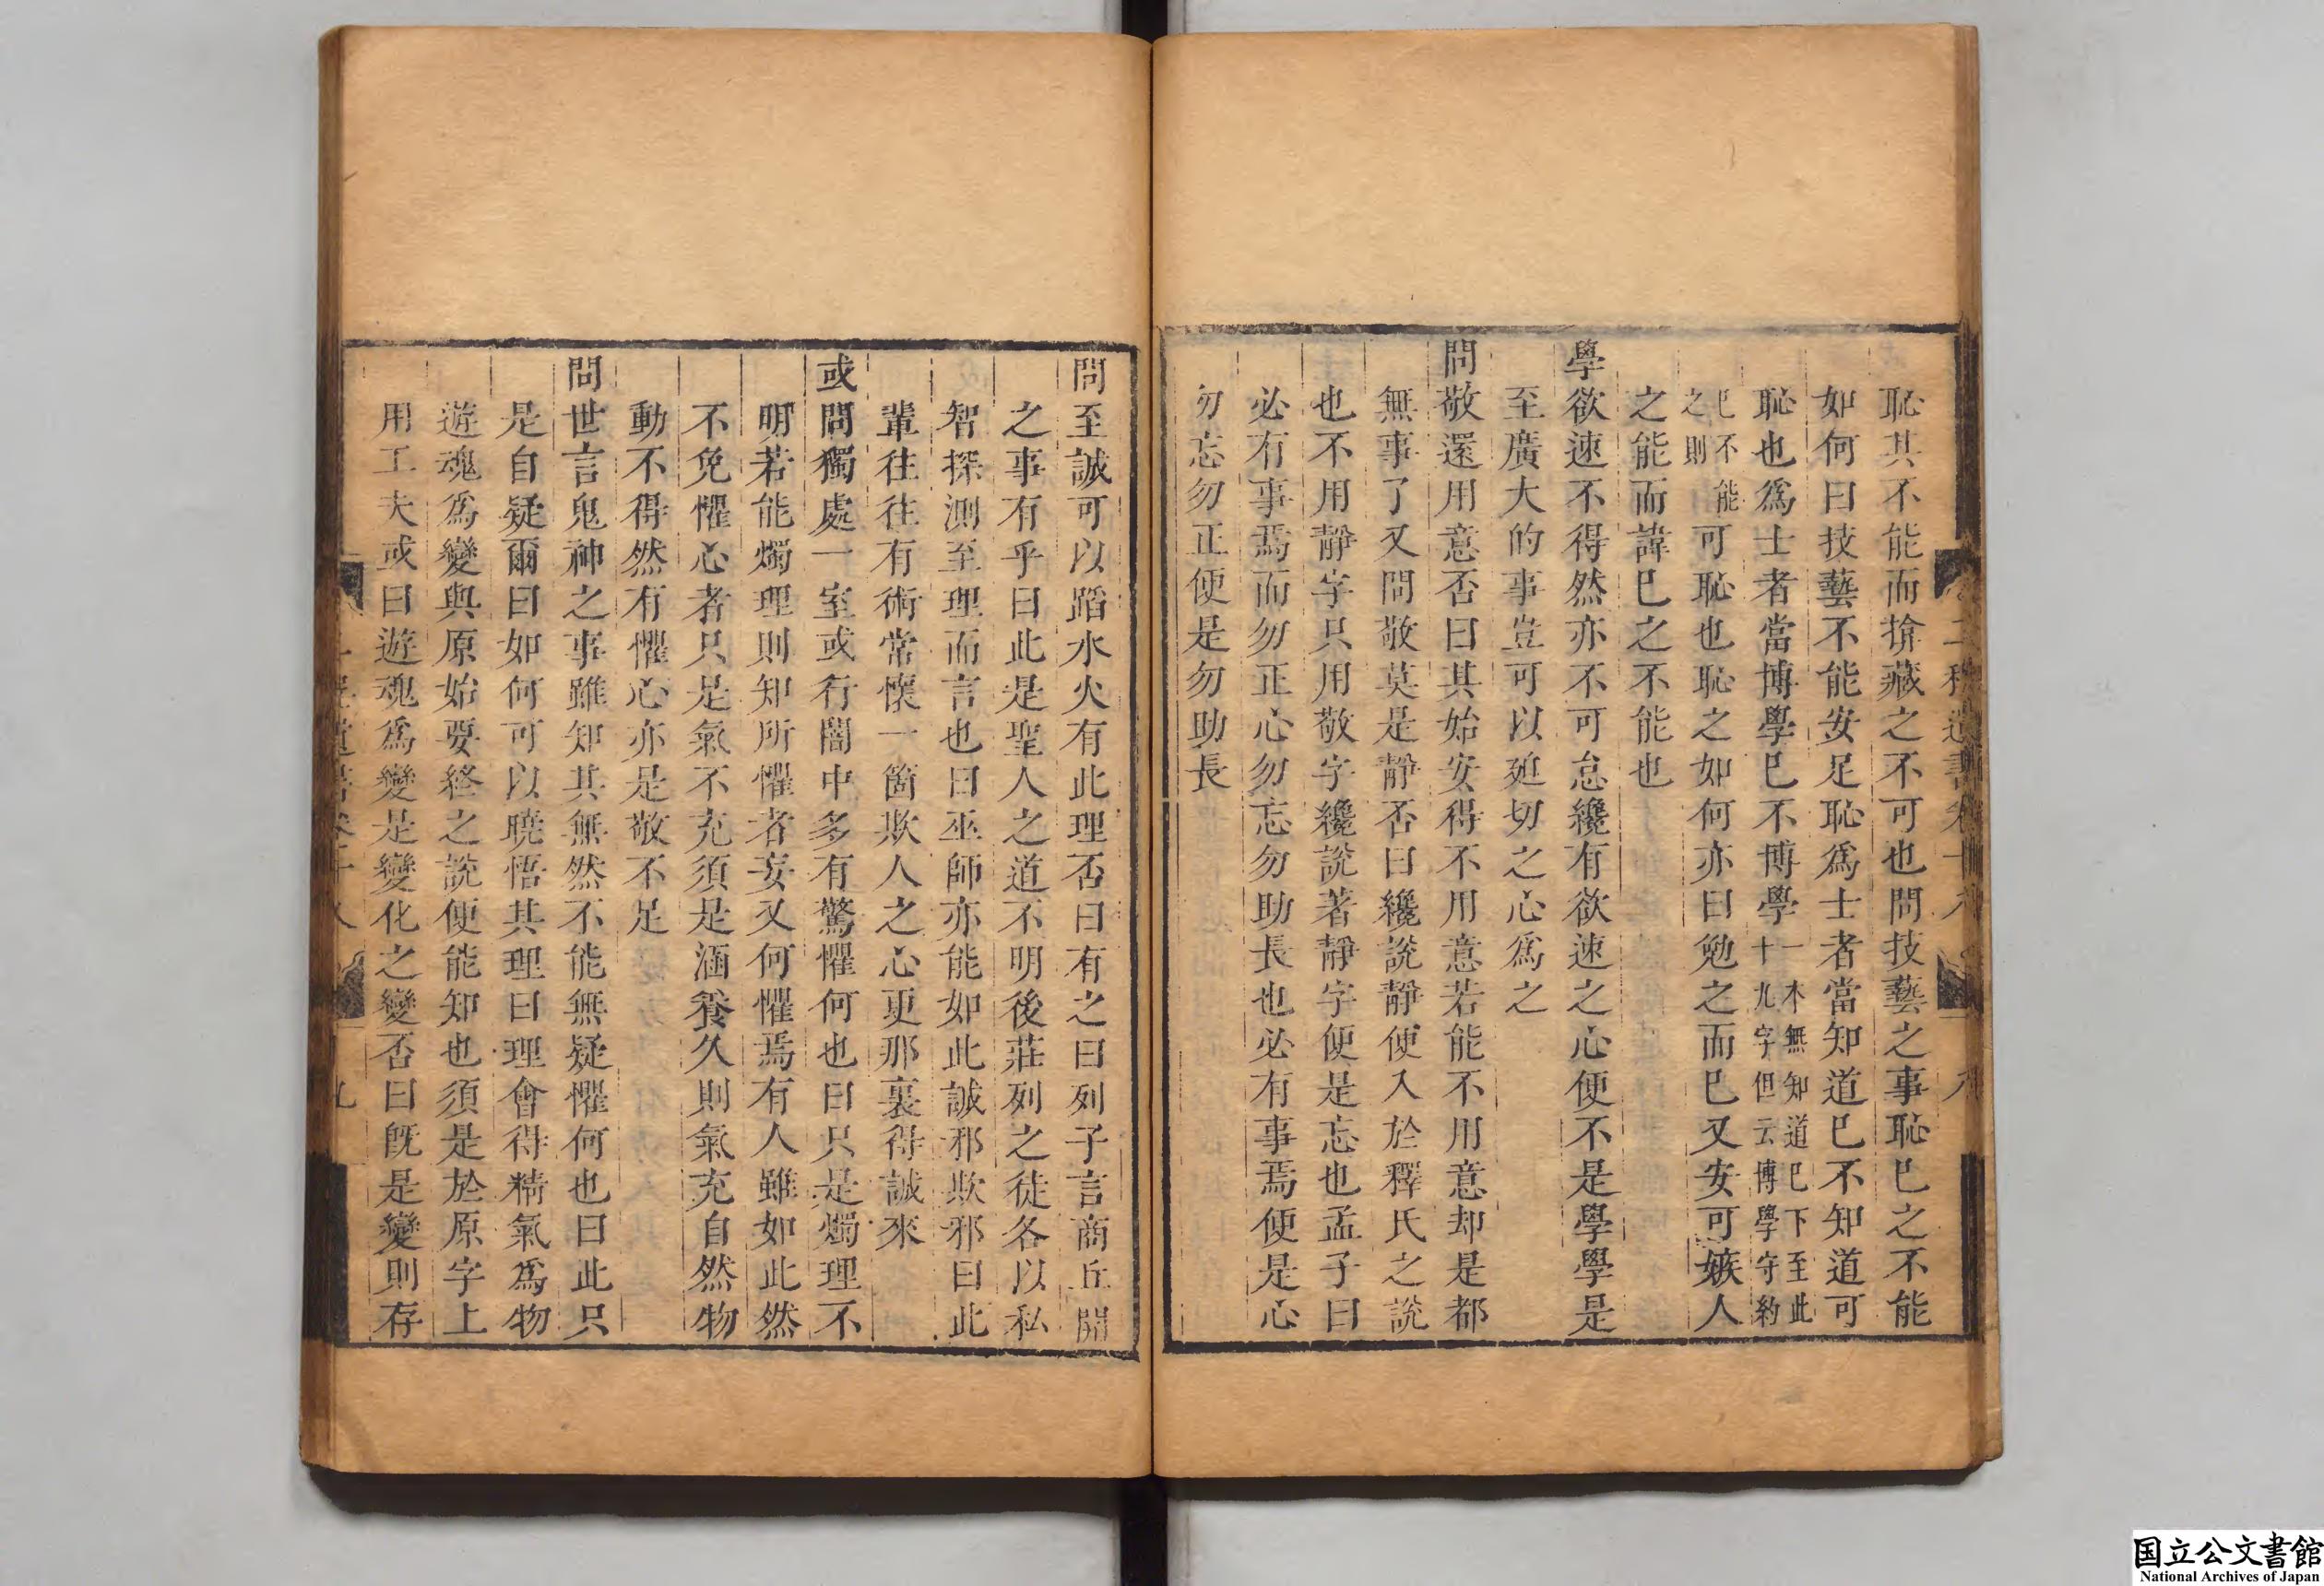 恥其不能而揜藏之不可也問技藝之事恥已之不能
如何曰技藝不能安足恥爲士者當知道已不知道可
恥也爲士者當博學已不博學一本無知道已下至此十九字但云博學守約
已不能之則可恥也恥之如何亦曰勉之而已又安可嫉人
之能而諱已之不能也
學欲速不得然亦不可怠纔有欲速之心便不是學學是
至廣大的事豈可以廹切之心爲之
問敬還用意否曰其始安得不用意若能不用意却是都
無事了又問敬莫是靜否曰纔説靜便入於釋氏之説
也不用靜字只用敬字纔説著靜字便是忘也孟子曰
必有事焉而勿正心勿忘勿助長也必有事焉便是心
勿忘勿正便是勿助長
問至誠可以蹈水火有此理否曰有之曰列子言商丘開
之事有乎曰此是聖人之道不明後莊列之徒各以私
智探測至理而言也曰巫師亦能如此誠邪欺邪曰此
輩往往有術常懷一箇欺人之心更那裏得誠來
或問獨處一室或行闇中多有驚懼何也曰只是燭理不
明若能燭理則知所懼者妄又何懼焉有人雖如此然
不免懼心者只是氣不充須是涵養久則氣充自然物
動不得然有懼心亦是敬不足
問世言鬼神之事雖知其無然不能無疑懼何也曰此只
是自疑爾曰如何可以曉悟其理曰理會得精氣爲物
遊魂爲變與原始要終之説便能知也須是於原字上
用工夫或曰遊魂爲變是變化之變否曰旣是變則存
国立公文書館
National Archives of Japan